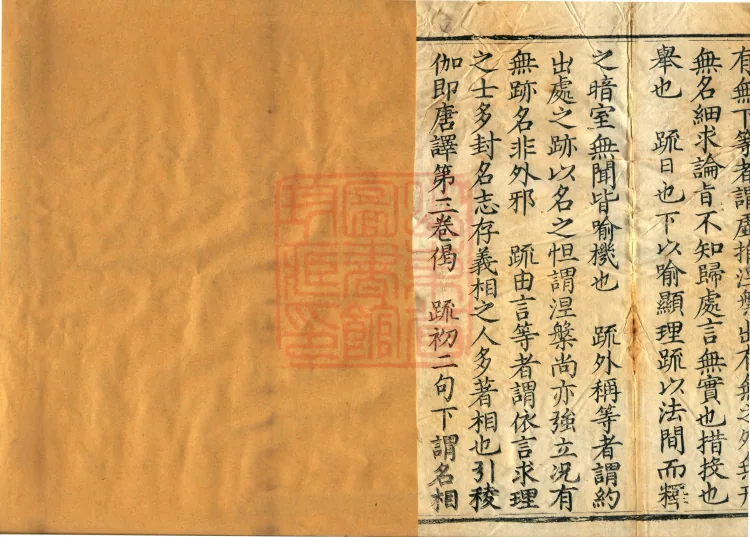 有無下等者謂虛指涅槃出有無之外無
無名細求論旨不知歸處言無實也措投也
舉也　疏日也下以喻顯理疏以法間而釋
之暗室無聞皆喻機也　疏外稱等者謂約
出處之跡以名之怛謂涅槃尚亦強立况有
無跡名非外邪　疏由言等者謂依言求理
之士多封名志存義相之人多著相也引稜
伽即唐譯第三卷偈　疏初二句下謂名相